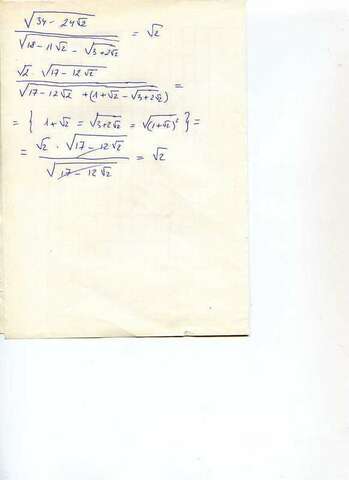 √(34 - 24√2) / √(18 - 11√2 - √(3+2√2)) = √2
√2 · √(17 - 12√2) / √(17 - 12√2 + (1+√2 - √(3+2√2))) =
= { 1+√2 = √(3+2√2) = √((1+√2)²) } =
= √2 · √(17 - 12√2) / √(17 - 12√2) = √2